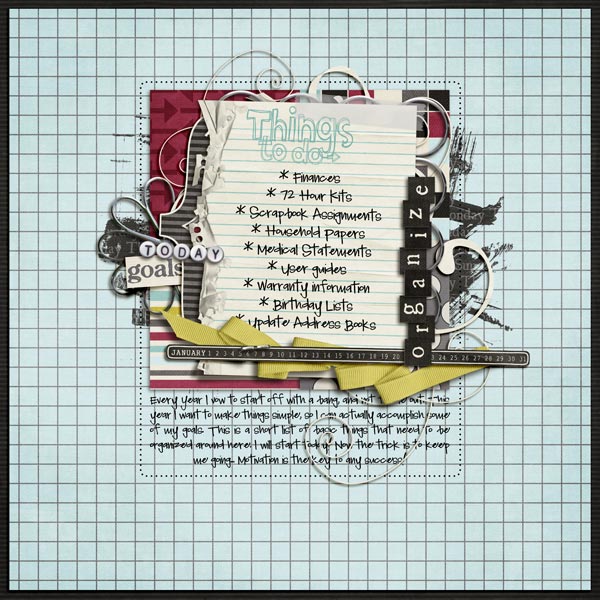 Things
to do
* Finances
* 72 Hour Kits
* Scrapbook Assignments
* Household Papers
* Medical Statements
* User guides
* Warranty information
* Birthday Lists
* Update Address Books
organize
TODAY
goals
JANUARY 1 2 3 4 5 6 7 8 9 10 11 12 13 14 15 16 17 18 19 20 23 24 25 26 27 28 29 30 31
Every year I vow to start off with a bang, and out. This
year I want to make things simple, so I can actually accomplish some
of my goals. This is a short list of basic things that need to be
organized around here. I will start today! Now the trick is to keep
me going. Motivation is the key to any success!